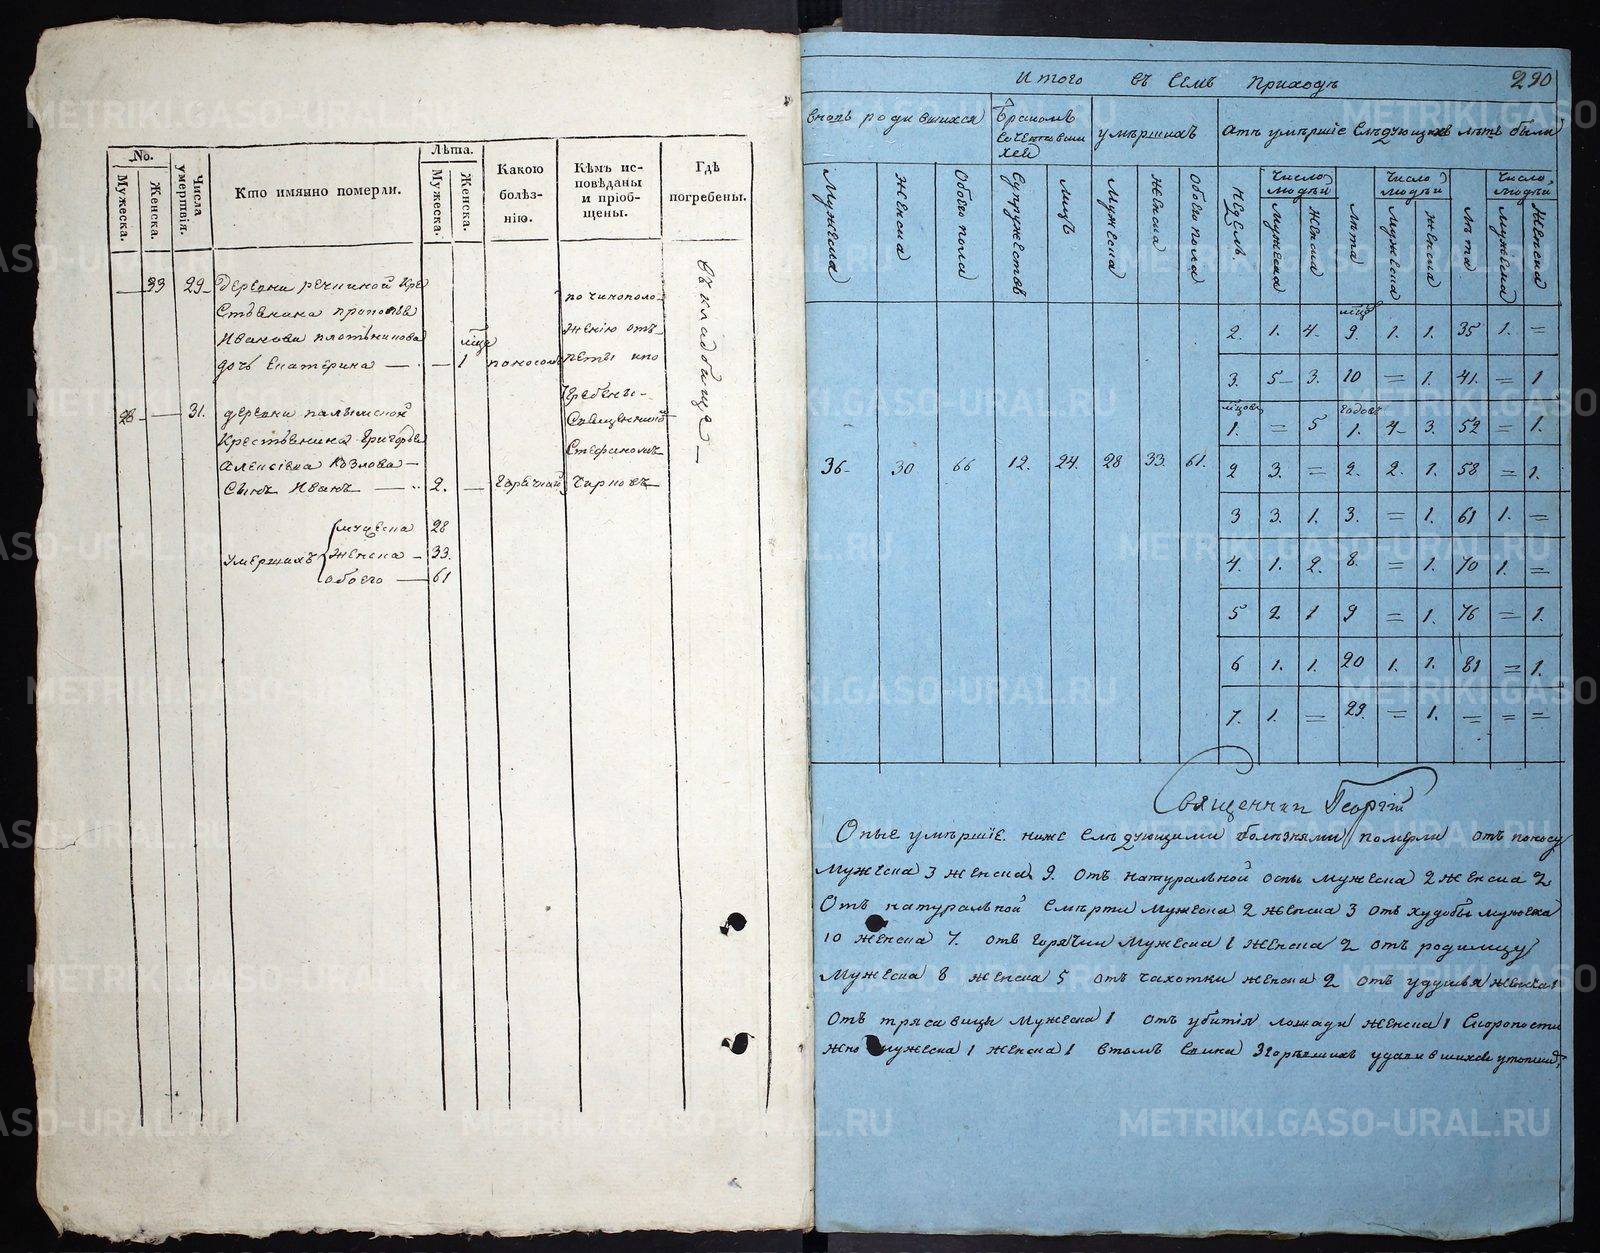 No.
Мужеска.
Женска.
Числа умертвія.
Кто имянно померли.
Лѣта.
Мужеска.
Женска.
Какою болѣз-
нію.
Кѣмъ ис-
повѣданы
и пріоб-
щены.
Гдѣ
погребены.
33 29 деревни речниной кре
стьянина
Иванова плотникова
дочь Екатерина — — 1 поносомъ
по чиноположенію отъ-
петы и по
гребены
Священникъ
Стефаномъ
въ кладбище —
28 — 31. деревни
крестьянина Григорья
Алексіева Козлова —
сынъ Иванъ — 2. — горячкій
умершихъ мужеска 28
женска — 33.
обоего — 61
Итого въ семъ приходѣ 290
вновь родившихся
бракомъ сочетавши
хся
умершихъ
а тѣ умершіе слѣдующихъ лѣтъ были
Мужеска
женска
Обоего пола
Супружествъ
лицъ
Мужеска
женска
обоего пола
недель.
Число людѣй
Мужеска
женска
лѣта
Число людѣй
Мужеска
женска
лѣта
Число людѣй
Мужеска
женска
36 30 66 12. 24. 28 33. 61.
2. 1. 4. 9. 1. 1. 35 1. =
3. 5 3. 10 = 1. 41. = 1
мцовъ годовъ
1. = 5 1. 4 3. 52 = 1.
2 3. = 2. 2. 1. 58 = 1.
3 3. 1. 3. = 1. 61 1. =
4. 1. 2. 8. = 1. 70 1. =
5 2 1 9 = 1. 76 = 1.
6 1. 1. 20 1. 1. 81 = 1.
7. 1. = 29. = 1. = = =
Священник Георгій
Оные умершіе ниже следующими болезнями померли отъ поносу
Мужеска 3 женска 9. отъ натуральной оспы мужеска 2 женска 2
Отъ натуральной смерти мужеска 2 женска 3 отъ худобы мужеска
10 женска 7. отъ горячки мужеска 1 женска 2 отъ родимцу
Мужеска 8 женска 5 отъ чахотки женска 2 отъ удушья женска 1
Отъ трясавицы мужеска 1 отъ убитія лошади женска 1 Скоропости
жно мужеска 1 женска 1 въ томъ
METRIKI.GASO-URAL.RU